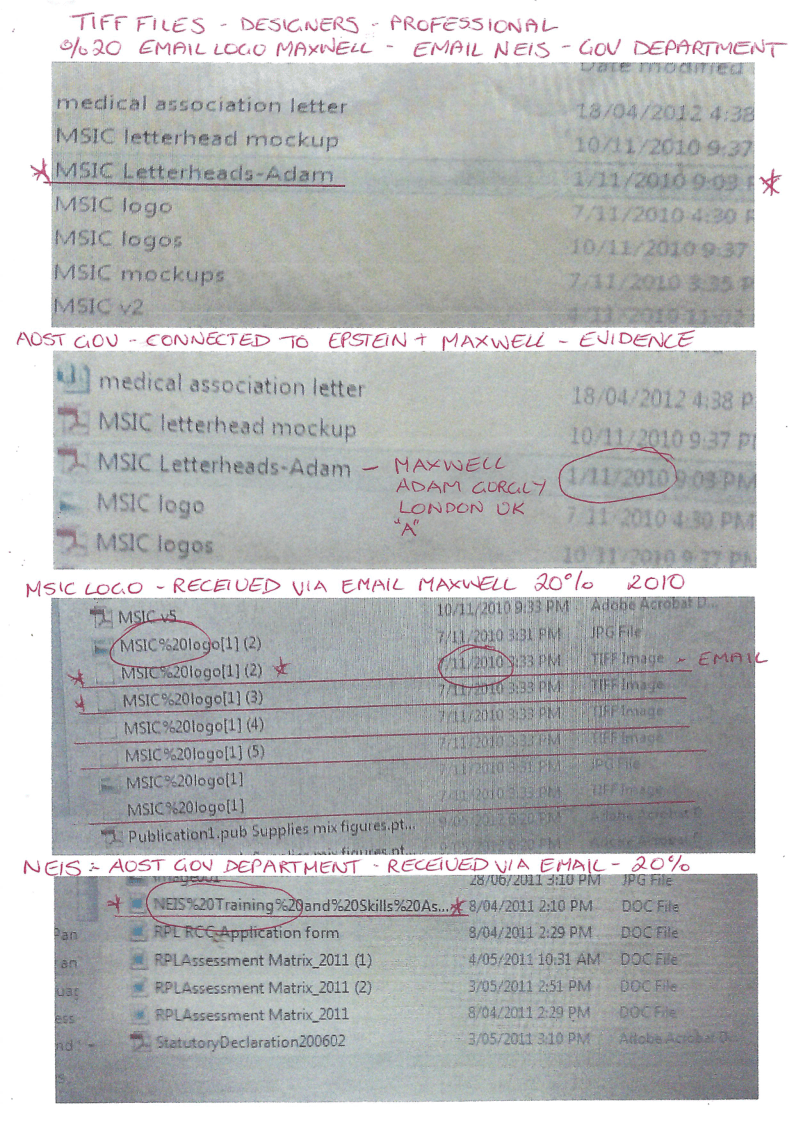 TIFF FILES - DESIGNERS - PROFESSIONAL
%20 EMAIL LOGO MAXWELL - EMAIL NEIS - GOV DEPARTMENT
Date modified
medical association letter 18/04/2012 4:38
MSIC letterhead mockup 10/11/2010 9:37
MSIC Letterheads-Adam 1/11/2010 9:03 P
MSIC logo 7/11/2010 4:30 P
MSIC logos 10/11/2010 9:37
MSIC mockups 7/11/2010 3:35 P
MSIC v2
AOST GOV - CONNECTED TO EPSTEIN + MAXWELL - EVIDENCE
medical association letter 18/04/2012 4:38 P
MSIC letterhead mockup 10/11/2010 9:37 PM
MSIC Letterheads-Adam - MAXWELL 1/11/2010 9:03 PM
ADAM GORGLY
LONDON UK
"A"
MSIC logo 7/11/2010 4:30 PM
MSIC logos 10/11/2010 9:37 PM
MSIC LOGO - RECEIVED VIA EMAIL MAXWELL 20% 2010
MSIC v5 10/11/2010 9:33 PM Adobe Acrobat D...
MSIC%20logo[1] (2) 7/11/2010 3:31 PM JPG File
MSIC%20logo[1] (2) 7/11/2010 3:33 PM TIFF Image - EMAIL
MSIC%20logo[1] (3) 7/11/2010 3:33 PM TIFF Image
MSIC%20logo[1] (4) 7/11/2010 3:33 PM TIFF Image
MSIC%20logo[1] (5) 7/11/2010 3:33 PM TIFF Image
MSIC%20logo[1] 7/11/2010 3:31 PM JPG File
MSIC%20logo[1] 7/11/2010 3:33 PM TIFF Image
Publication1.pub Supplies mix figures.pt... 9/05/2012 6:20 PM Adobe Acrobat D...
NEIS :- AOST GOV DEPARTMENT - RECEIVED VIA EMAIL - 20%
image001 28/06/2011 3:10 PM JPG File
NEIS%20Training%20and%20Skills%20As... 8/04/2011 2:10 PM DOC File
RPL RCC Application form 8/04/2011 2:29 PM DOC File
RPLAssessment Matrix_2011 (1) 4/05/2011 10:31 AM DOC File
RPLAssessment Matrix_2011 (2) 3/05/2011 2:51 PM DOC File
RPLAssessment Matrix_2011 8/04/2011 2:29 PM DOC File
StatutoryDeclaration200602 3/05/2011 3:10 PM Adobe Acrobat D...